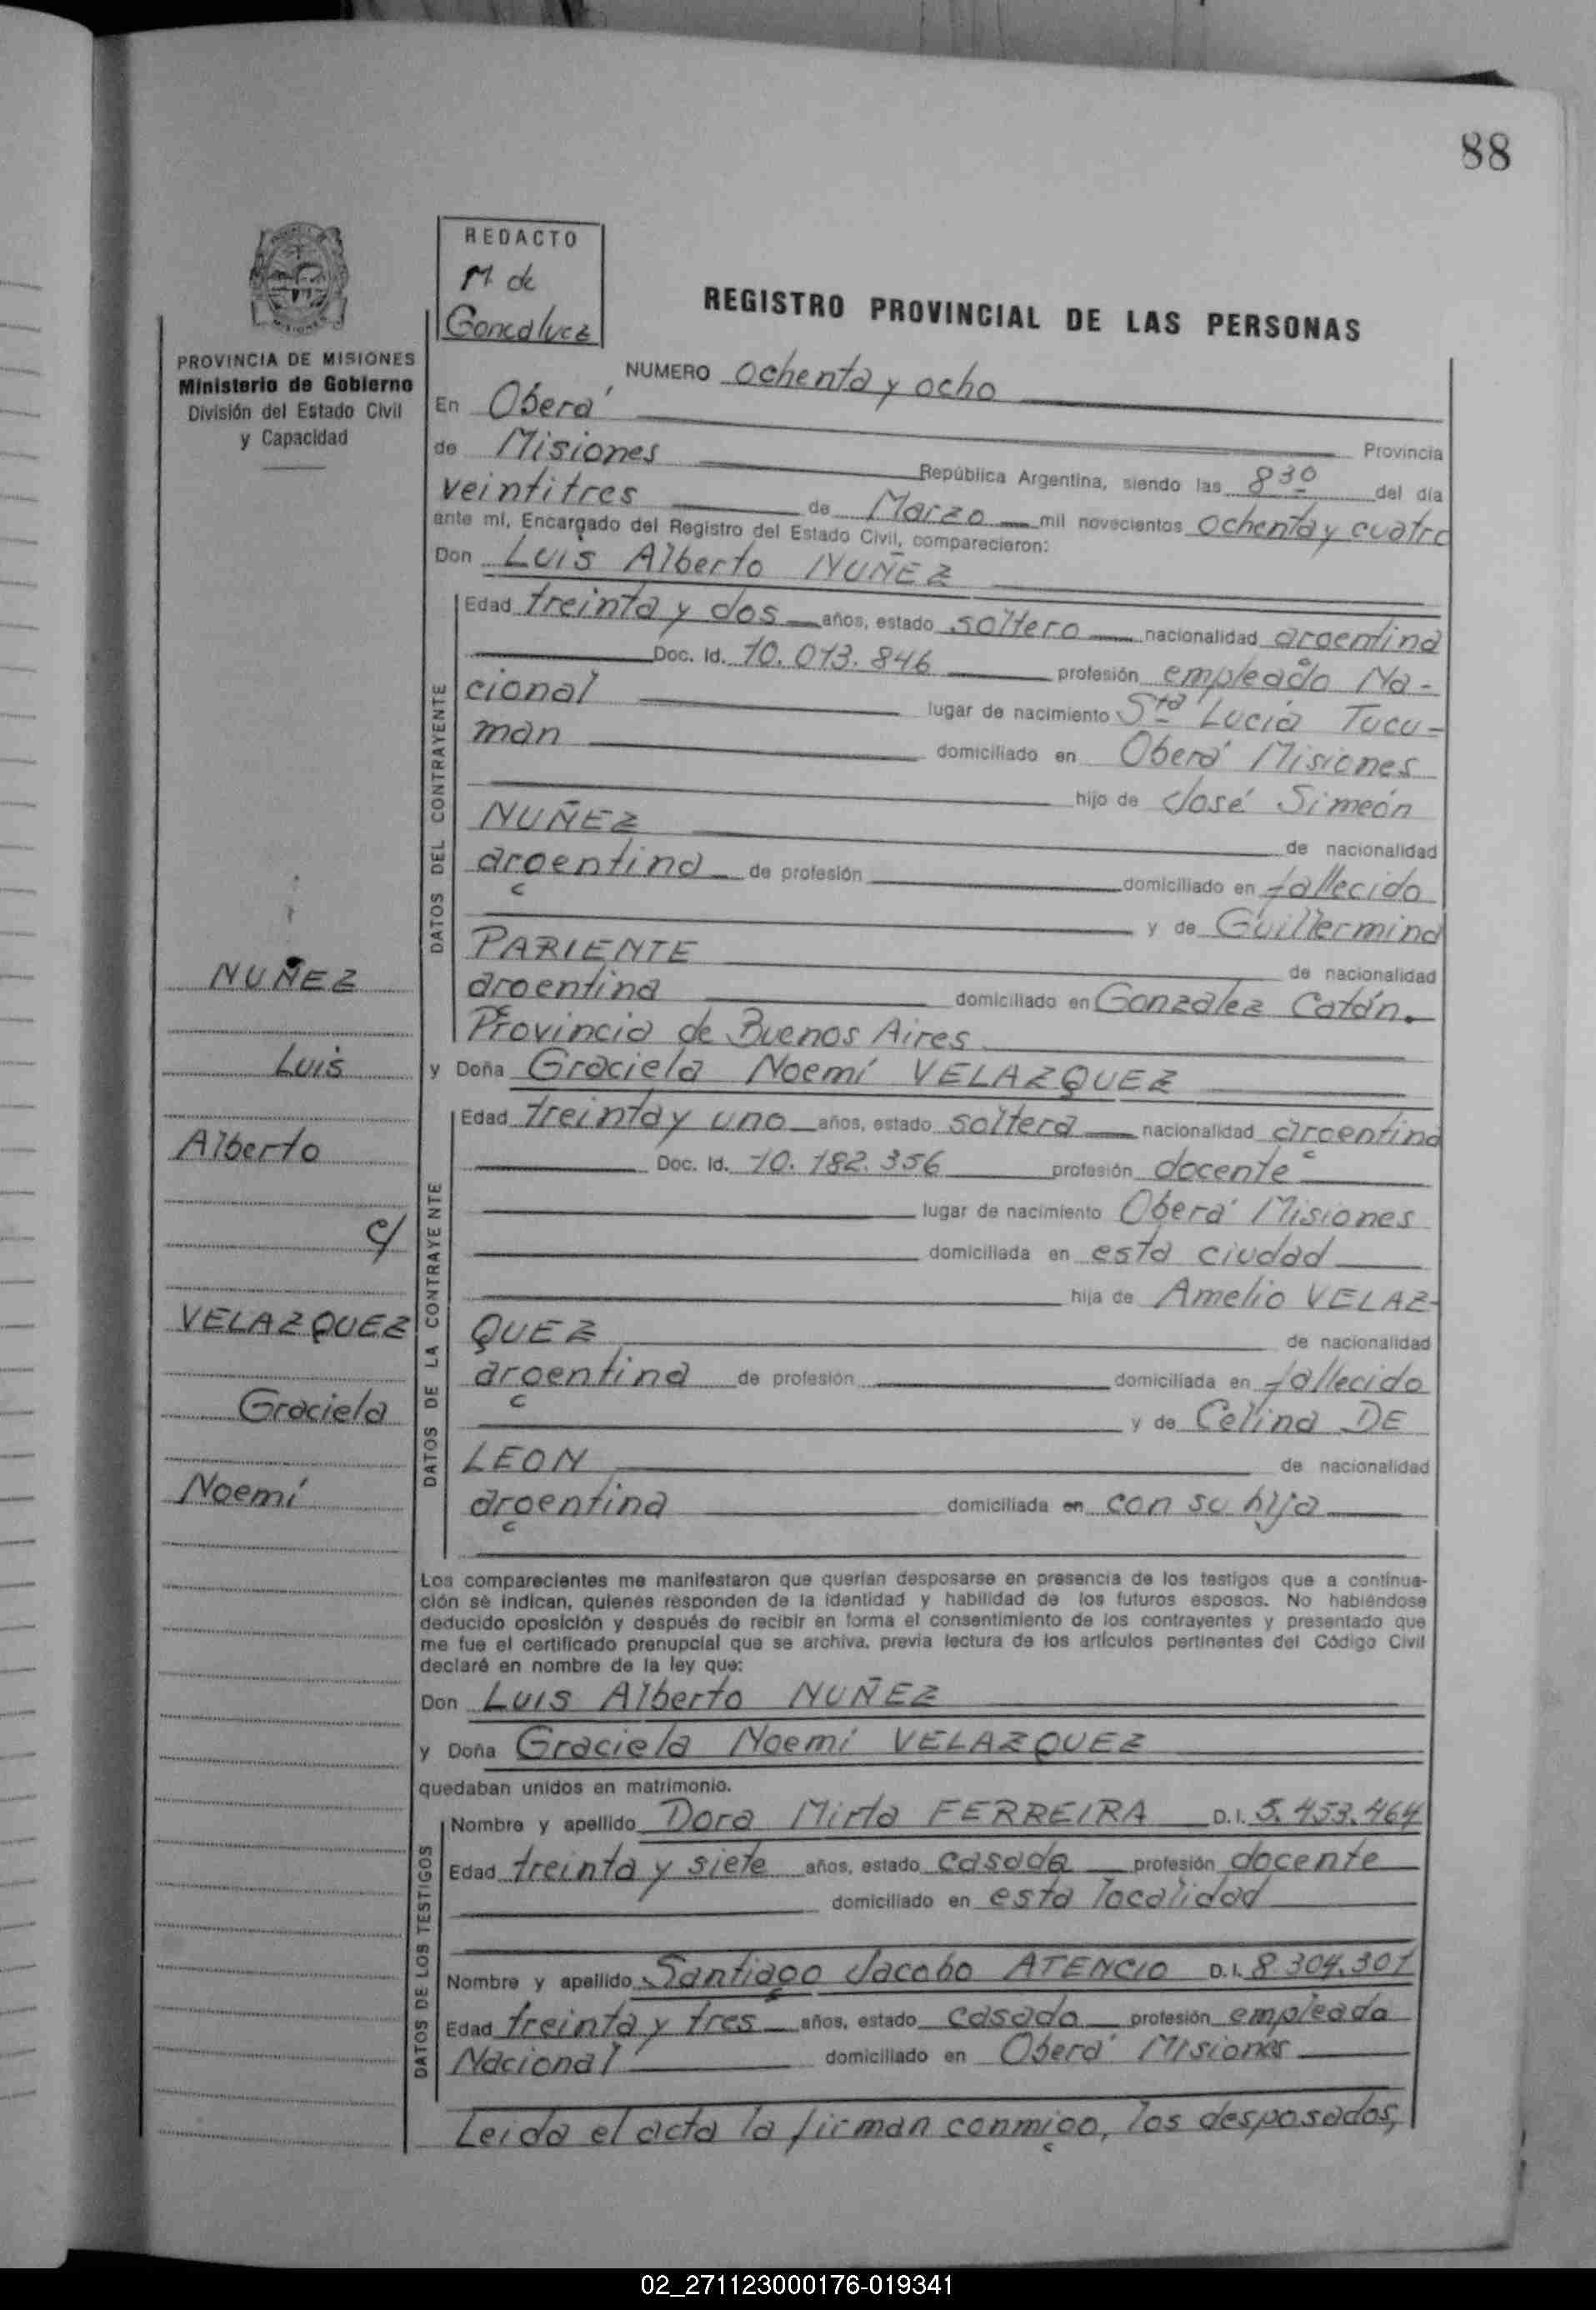 88
REDACTO
M. de
Goncalvez
REGISTRO PROVINCIAL DE LAS PERSONAS
PROVINCIA DE MISIONES
Ministerio de Gobierno
División del Estado Civil
y Capacidad
NUMERO ochenta y ocho
En Oberá
Provincia
de Misiones República Argentina, siendo las 8 30 del día
veintitres de Marzo mil novecientos ochenta y cuatro
ante mí, Encargado del Registro del Estado Civil, comparecieron:
Don Luis Alberto NUÑEZ
DATOS DEL CONTRAYENTE
Edad treinta y dos años, estado soltero nacionalidad argentina
Doc. Id. 10.013.846 profesión empleado Na-
cional lugar de nacimiento Sta Lucía Tucu-
man domiciliado en Oberá Misiones
hijo de José Simeón
NUÑEZ de nacionalidad
argentina de profesión domiciliado en fallecido
y de Guillermina
PARIENTE de nacionalidad
argentina domiciliado en Gonzalez Catán.
Provincia de Buenos Aires
y Doña Graciela Noemí VELAZQUEZ
DATOS DE LA CONTRAYENTE
Edad treinta y uno años, estado soltera nacionalidad argentina
Doc. Id. 10.182.356 profesión docente
lugar de nacimiento Oberá Misiones
domiciliada en esta ciudad
hija de Amelio VELAZ-
QUEZ de nacionalidad
argentina de profesión domiciliada en fallecido
y de Celina DE
LEON de nacionalidad
argentina domiciliada en con su hija
NUÑEZ
Luis
Alberto
c/
VELAZQUEZ
Graciela
Noemí
Los comparecientes me manifestaron que querían desposarse en presencia de los testigos que a continua-
ción se indican, quienes responden de la identidad y habilidad de los futuros esposos. No habiéndose
deducido oposición y después de recibir en forma el consentimiento de los contrayentes y presentado que
me fue el certificado prenupcial que se archiva, previa lectura de los artículos pertinentes del Código Civil
declaré en nombre de la ley que:
Don Luis Alberto NUÑEZ
y Doña Graciela Noemí VELAZQUEZ
quedaban unidos en matrimonio.
DATOS DE LOS TESTIGOS
Nombre y apellido Dora Mirta FERREIRA D.I. 5.453.464
Edad treinta y siete años, estado casada profesión docente
domiciliado en esta localidad
Nombre y apellido Santiago Jacobo ATENCIO D.I. 8.304.301
Edad treinta y tres años, estado casado profesión empleado
Nacional domiciliado en Oberá Misiones
Leida el acta la firman conmigo, los desposados,
02_271123000176-019341